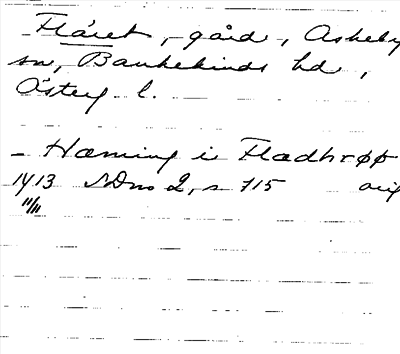 Flåret, gård, Askeby
sn, Bankekinds hd,
Österg. l.
– Hæming i Fladhrøø
1413 SDns 2, s 715 orig
11/11